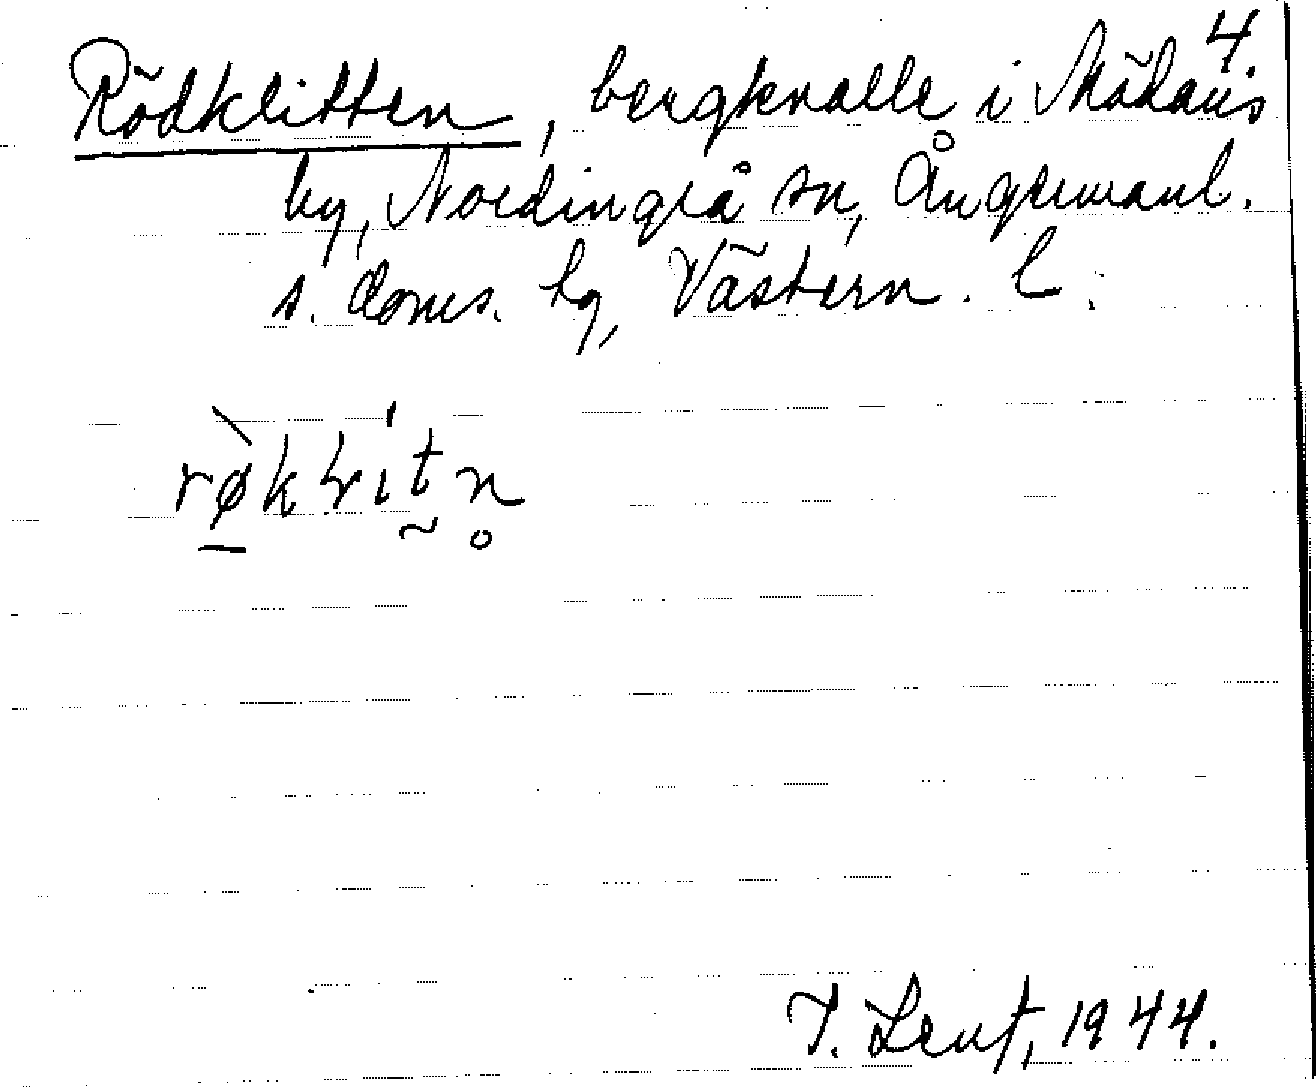 4.
Rödklitten, bergknalle i Mädans
by, Nordingrå sn, Ångermanl.
s. doms. hg, Västern. l.
røklitn
1944.